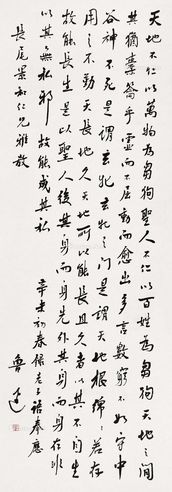 天地不仁以萬物為芻狗聖人不仁以百姓為芻狗天地之間
其猶橐籥乎虛而不屈動而愈出多言數窮不如守中
谷神不死是謂玄牝玄牝之門是謂天地根綿綿若存
用之不勤天長地久天地所以能長且久者以其不自生
故能長生是以聖人後其身而身先外其身而身存非
以其無私邪故能成其私
辛未初春錄老子語奉應
長尾景和仁兄雅教
魯迅